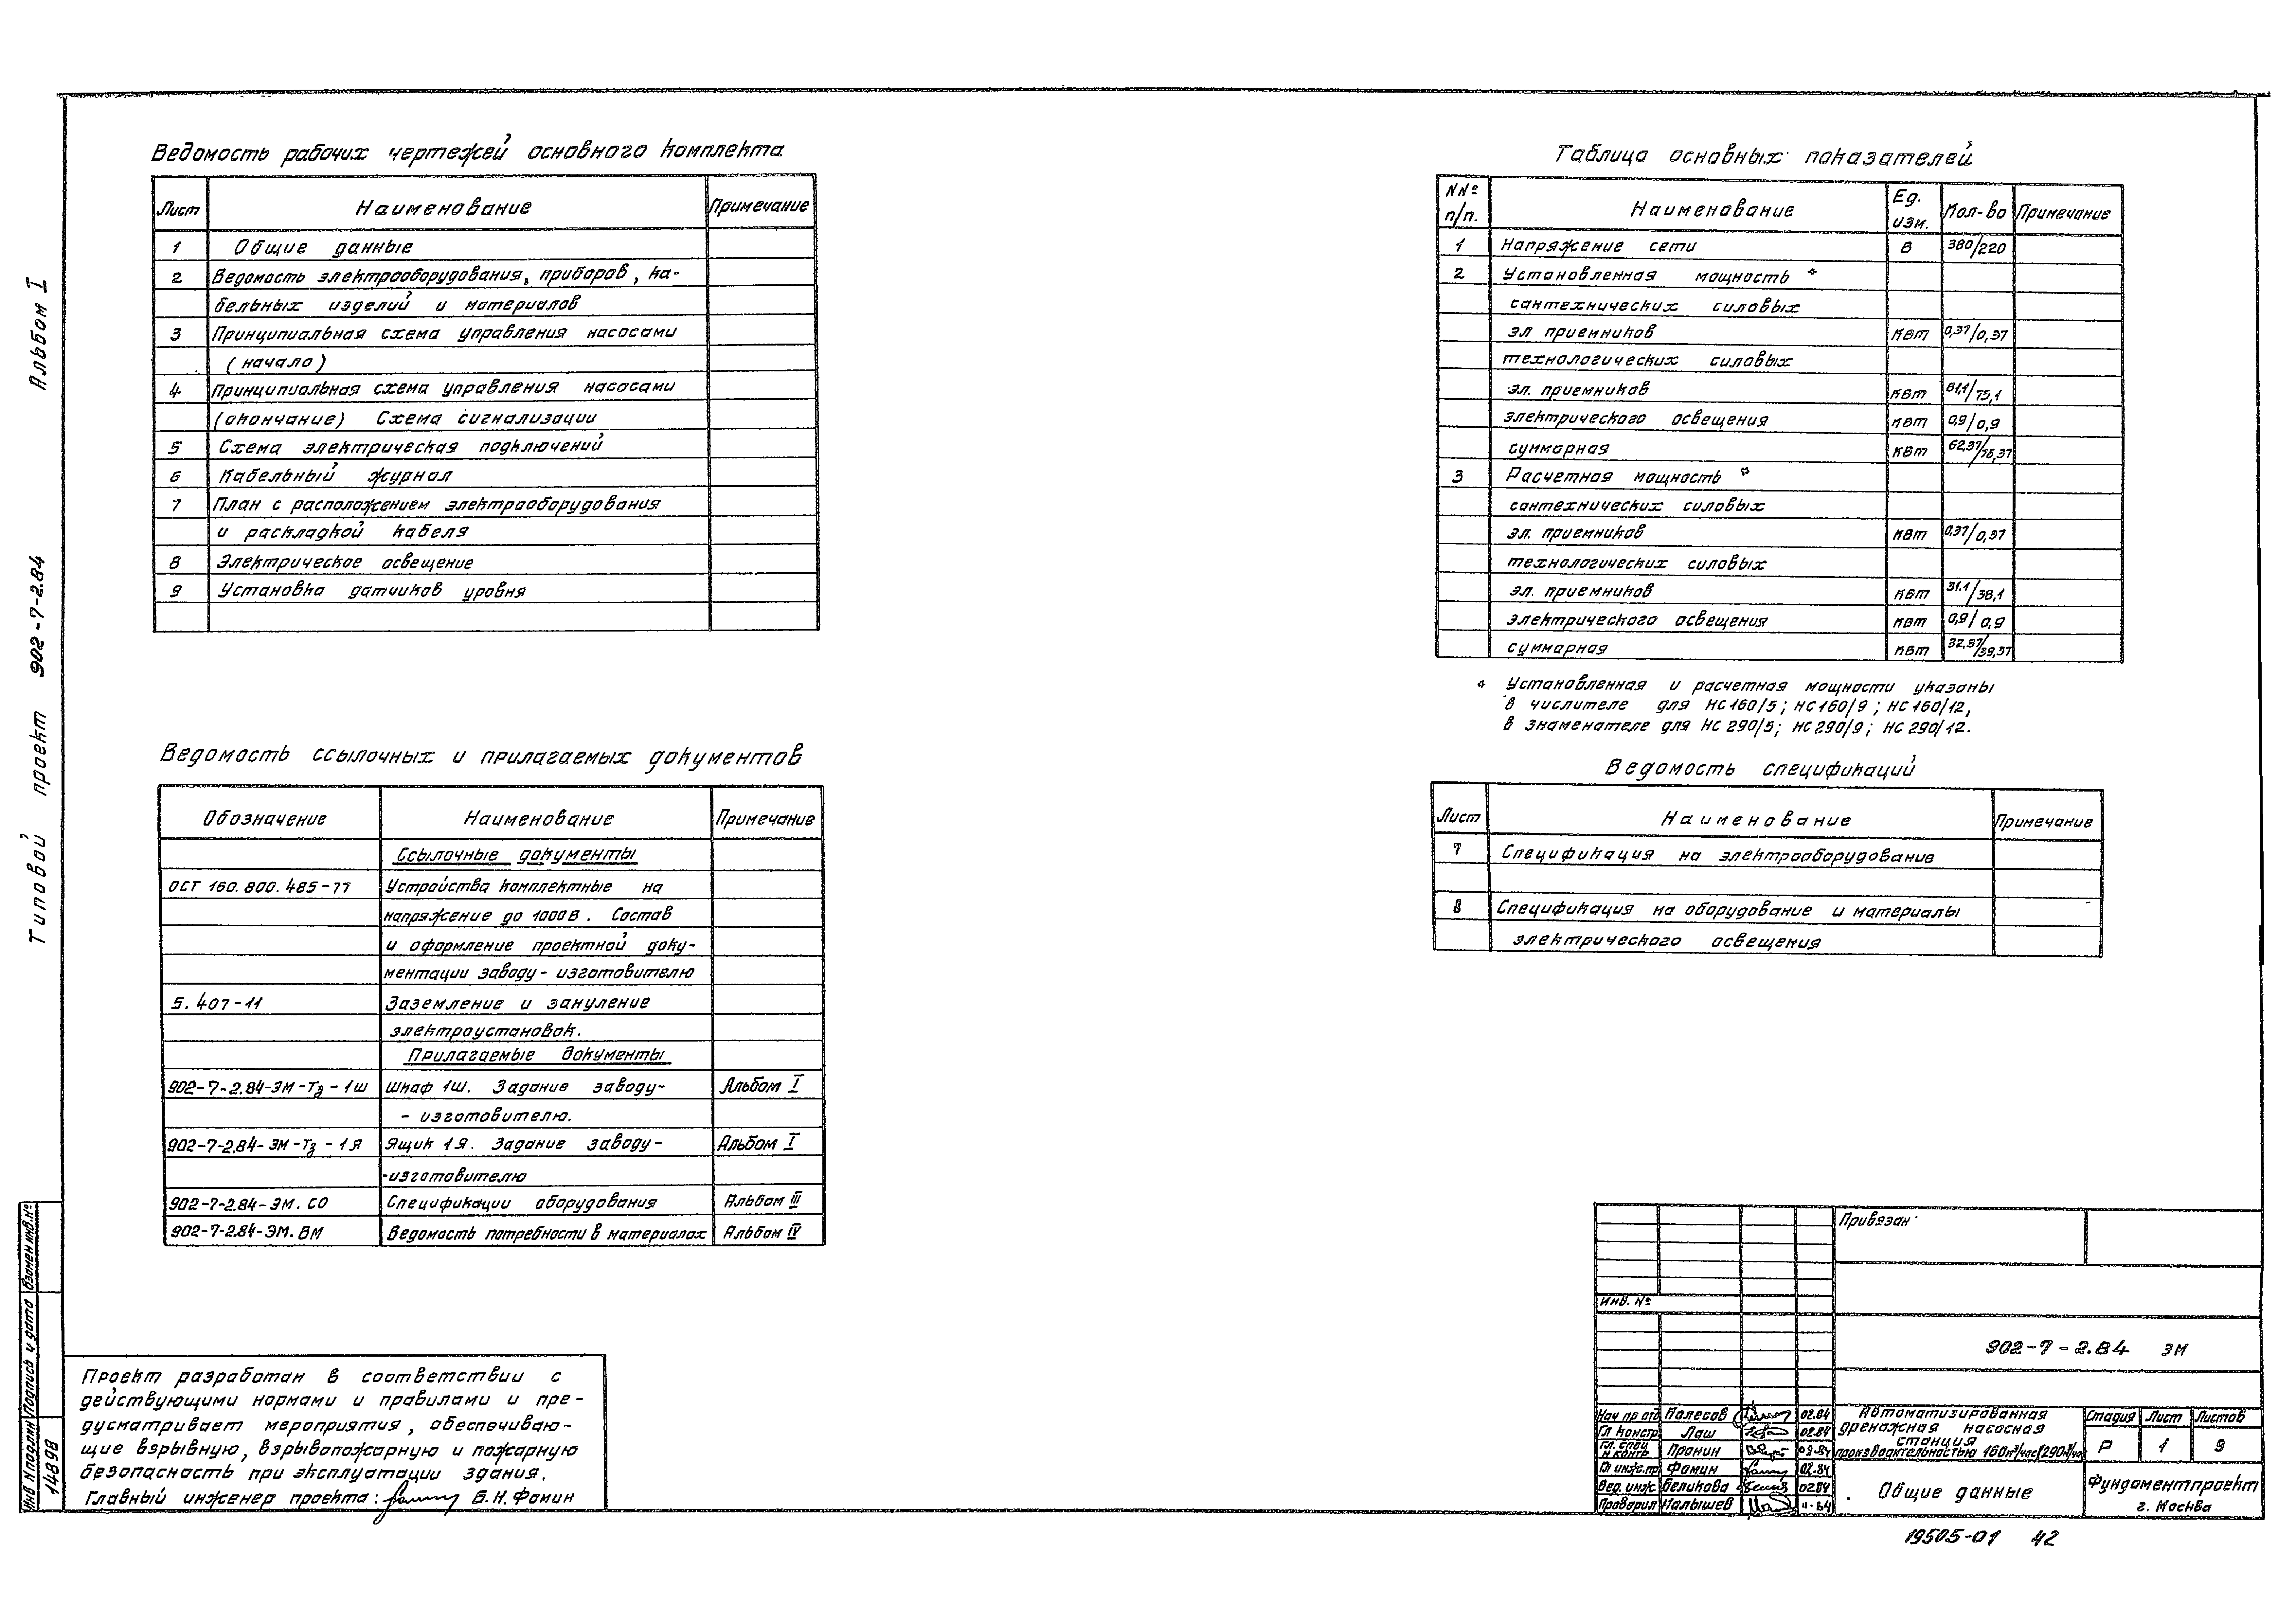 Альбом I
Типовой проект 902-7-2.84
Ведомость рабочих чертежей основного комплекта
Лист Наименование Примечание
1 Общие данные
2 Ведомость электрооборудования, приборов, ка-
бельных изделий и материалов
3 Принципиальная схема управления насосами
(начало)
4 Принципиальная схема управления насосами
(окончание) Схема сигнализации
5 Схема электрическая подключений
6 Кабельный журнал
7 План с расположением электрооборудования
и раскладкой кабеля
8 Электрическое освещение
9 Установка датчиков уровня
Ведомость ссылочных и прилагаемых документов
Обозначение Наименование Примечание
Ссылочные документы
ОСТ 160.800.485-77 Устройства комплектные на
напряжение до 1000 В. Состав
и оформление проектной доку-
ментации заводу-изготовителю
5.407-11 Заземление и зануление
электроустановок.
Прилагаемые документы
902-7-2.84-ЭМ-ТЗ-1Ш Шкаф 1Ш. Задание заводу- Альбом I
- изготовителю.
902-7-2.84-ЭМ-ТЗ-1Я Ящик 1Я. Задание заводу- Альбом I
-изготовителю
902-7-2.84-ЭМ.СО Спецификации оборудования Альбом III
902-7-2.84-ЭМ.ВМ Ведомость потребности в материалах Альбом IV
Таблица основных показателей
NNº п/п. Наименование Ед. изм. Кол-во Примечание
1 Напряжение сети В 380/220
2 Установленная мощность *
сантехнических силовых
эл приемников квт 0,37/0,37
технологических силовых
эл. приемников квт 61,1/75,1
электрического освещения квт 0,9/0,9
суммарная квт 62,37/76,37
3 Расчетная мощность *
сантехнических силовых
эл. приемников квт 0,37/0,37
технологических силовых
эл. приемников квт 31.1/38,1
электрического освещения квт 0,9/0,9
суммарная квт 32,37/39,37
* Установленная и расчетная мощности указаны
в числителе для НС 160/5; НС 160/9; НС 160/12,
в знаменателе для НС 290/5; НС 290/9; НС 290/12.
Ведомость спецификаций
Лист Наименование Примечание
7 Спецификация на электрооборудование
8 Спецификация на оборудование и материалы
электрического освещения
Проект разработан в соответствии с
действующими нормами и правилами и пре-
дусматривает мероприятия, обеспечиваю-
щие взрывную, взрывопожарную и пожарную
безопасность при эксплуатации здания.
Главный инженер проекта: Б.Н. Фомин
Инв N подлин Подпись и дата Взамен инв. №
14898
Привязан
Инв. №
902-7-2.84 ЭМ
Нач пр отд Колесов 02.84
Гл констр Лаш 02.84
Гл. спец н контр Пронин 02.84
Гл инж.пр Фомин 02.84
Вед. инж Беликова 02.84
Проверил Малышев II-84
Автоматизированная
дренажная насосная
станция
производительностью 160м³/час(290м³/час)
Стадия Лист Листов
Р 1 9
Общие данные
Фундаментпроект
г. Москва
19505-01 42